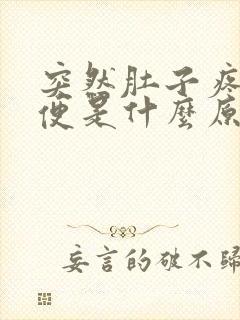 突然肚子疼
便是什麼原
妄言的破不歸